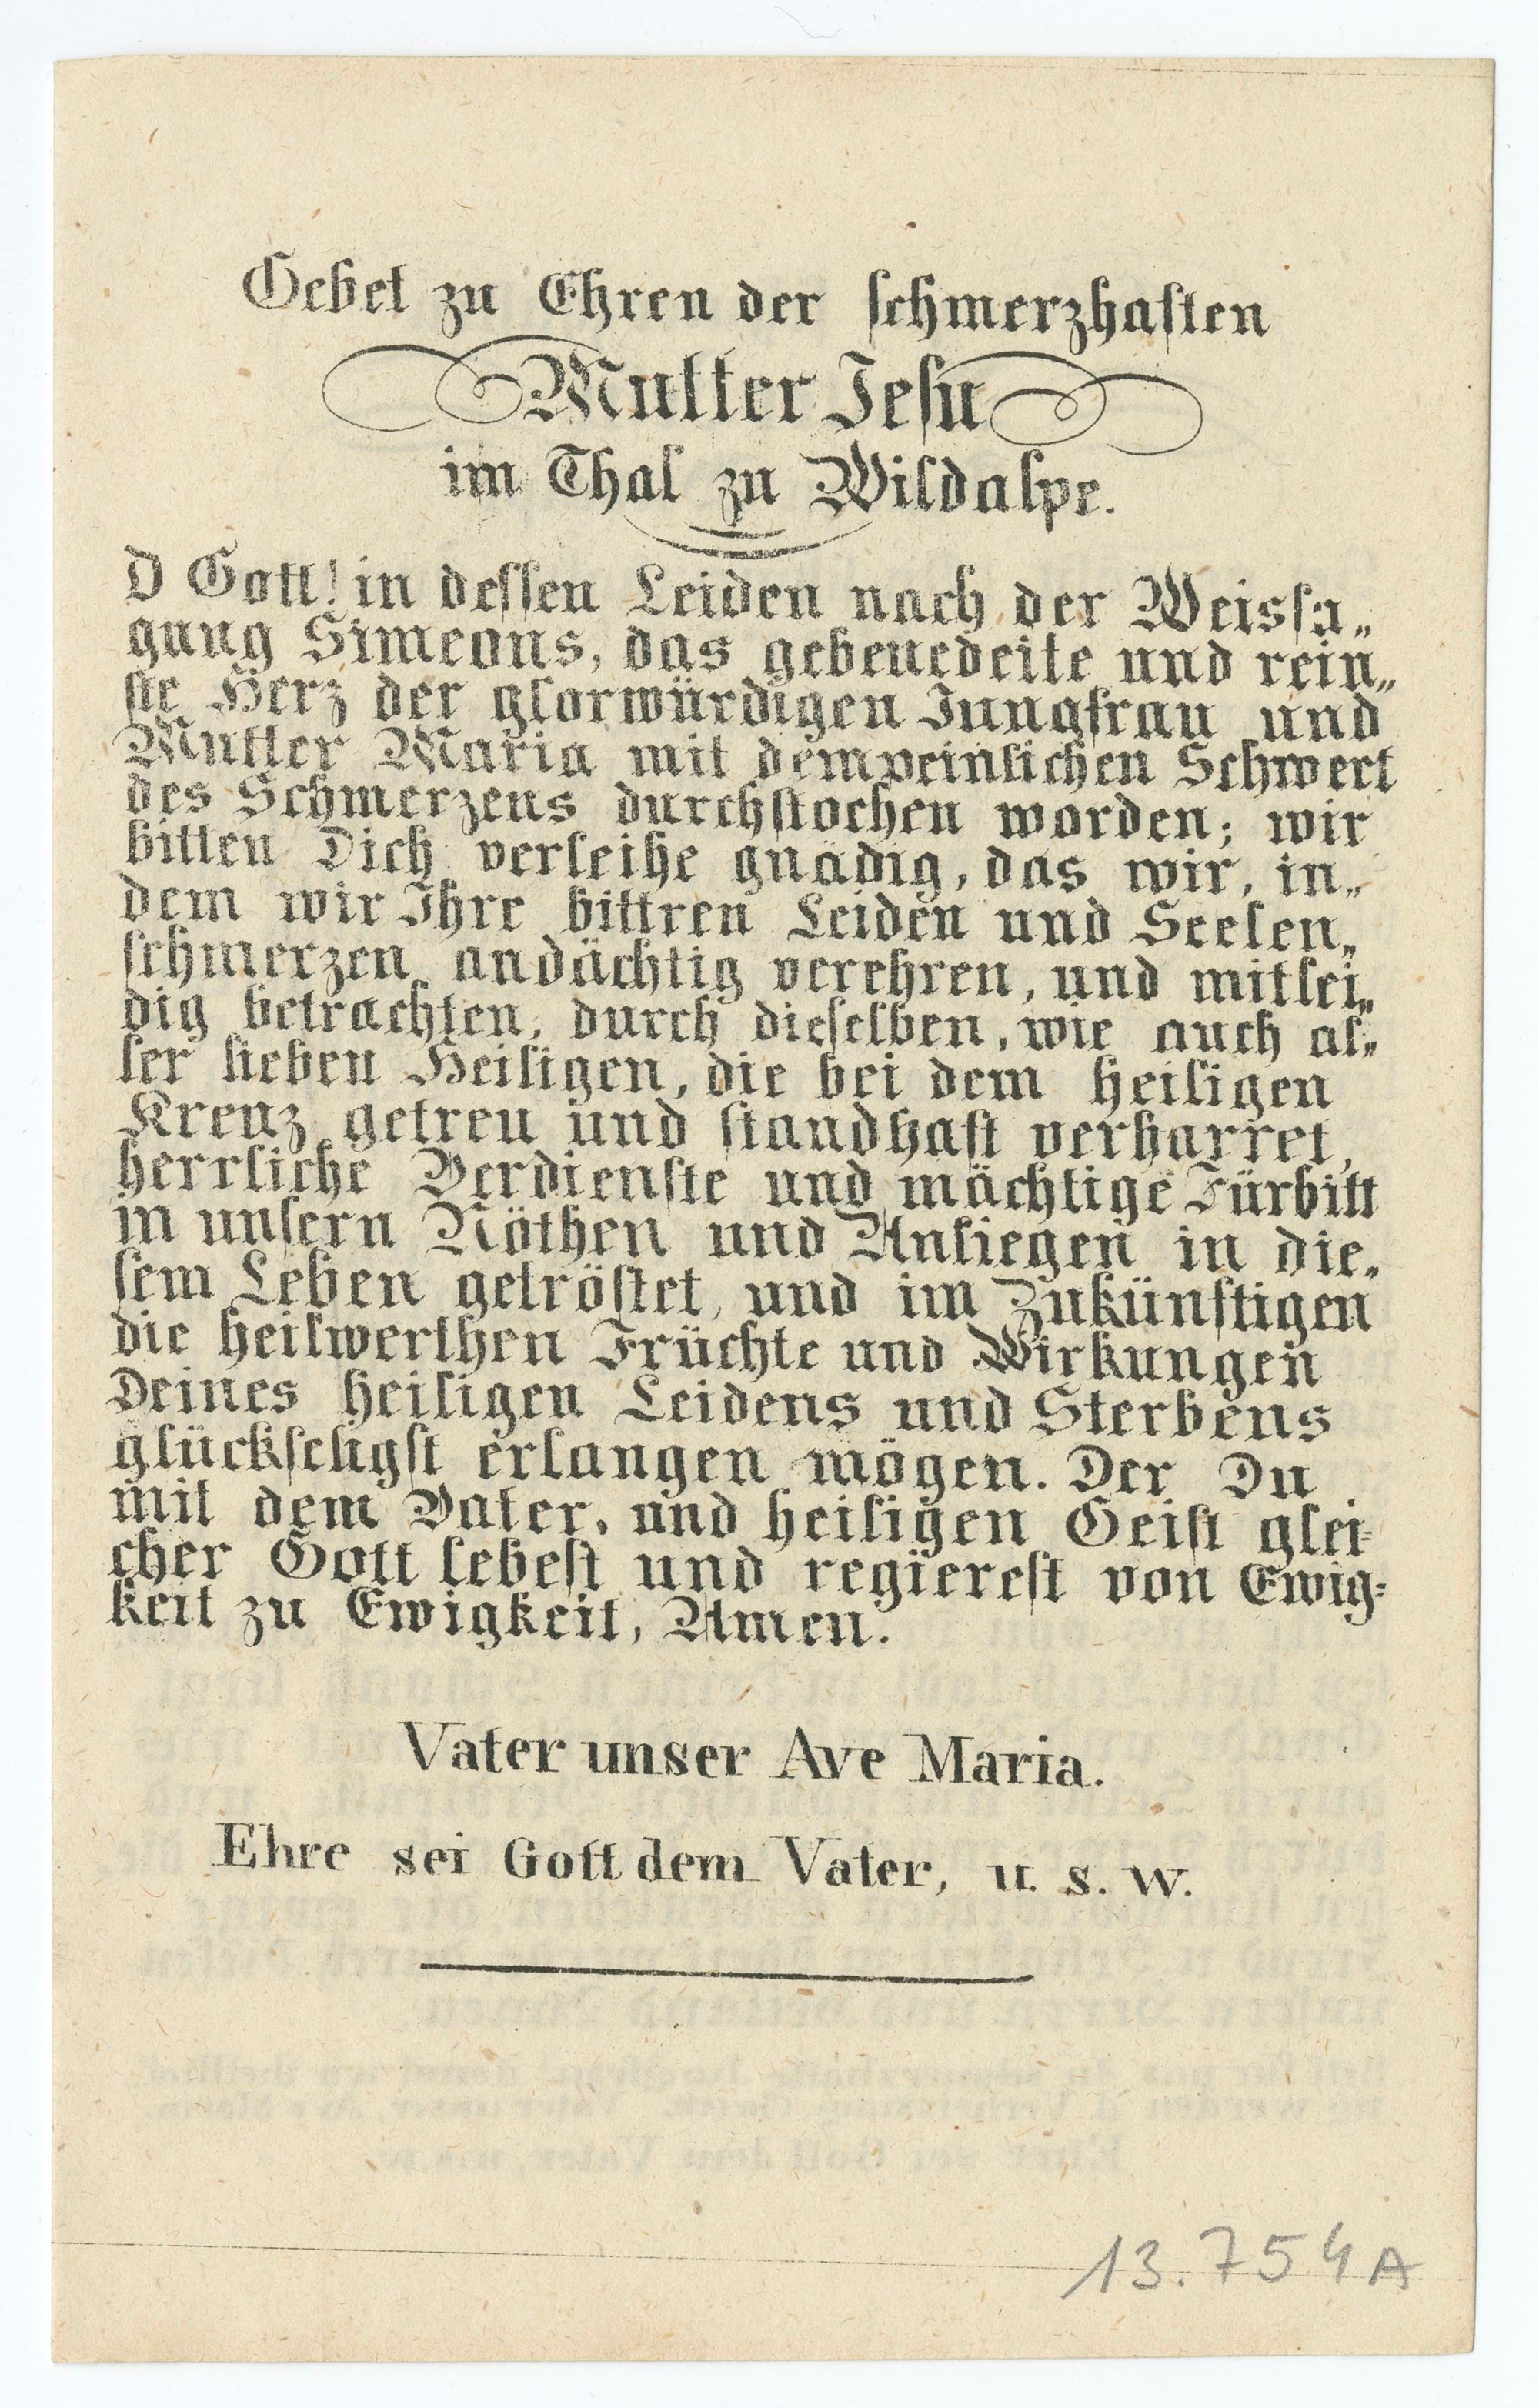 Gebet zu Ehren der schmerzhaften
Mutter Jesu
im Thal zu Wildalpe.
O Gott! in dessen Leiden nach der Weissa„
gung Simeons, das gebenedeite und rein„
ste Herz der glorwürdigen Jungfrau und
Mutter Maria mit dem peinlichen Schwert
des Schmerzens durchstochen worden; wir
bitten Dich verleihe gnädig, das wir, in„
dem wir Ihre bittren Leiden und Seelen„
schmerzen andächtig verehren, und mitlei„
dig betrachten, durch dieselben, wie auch al„
ler lieben Heiligen, die bei dem heiligen
Kreuz getreu und standhaft verharret,
herrliche Verdienste und mächtige Fürbitt
in unsern Nöthen und Anliegen in die„
sem Leben getröstet, und im Zukünftigen
die heilwerthen Früchte und Wirkungen
Deines heiligen Leidens und Sterbens
glückseligst erlangen mögen. Der Du
mit dem Vater, und heiligen Geist glei=
cher Gott lebest und regierest von Ewig=
keit zu Ewigkeit, Amen.
Vater unser Ave Maria.
Ehre sei Gott dem Vater, u. s. w.
13.754A